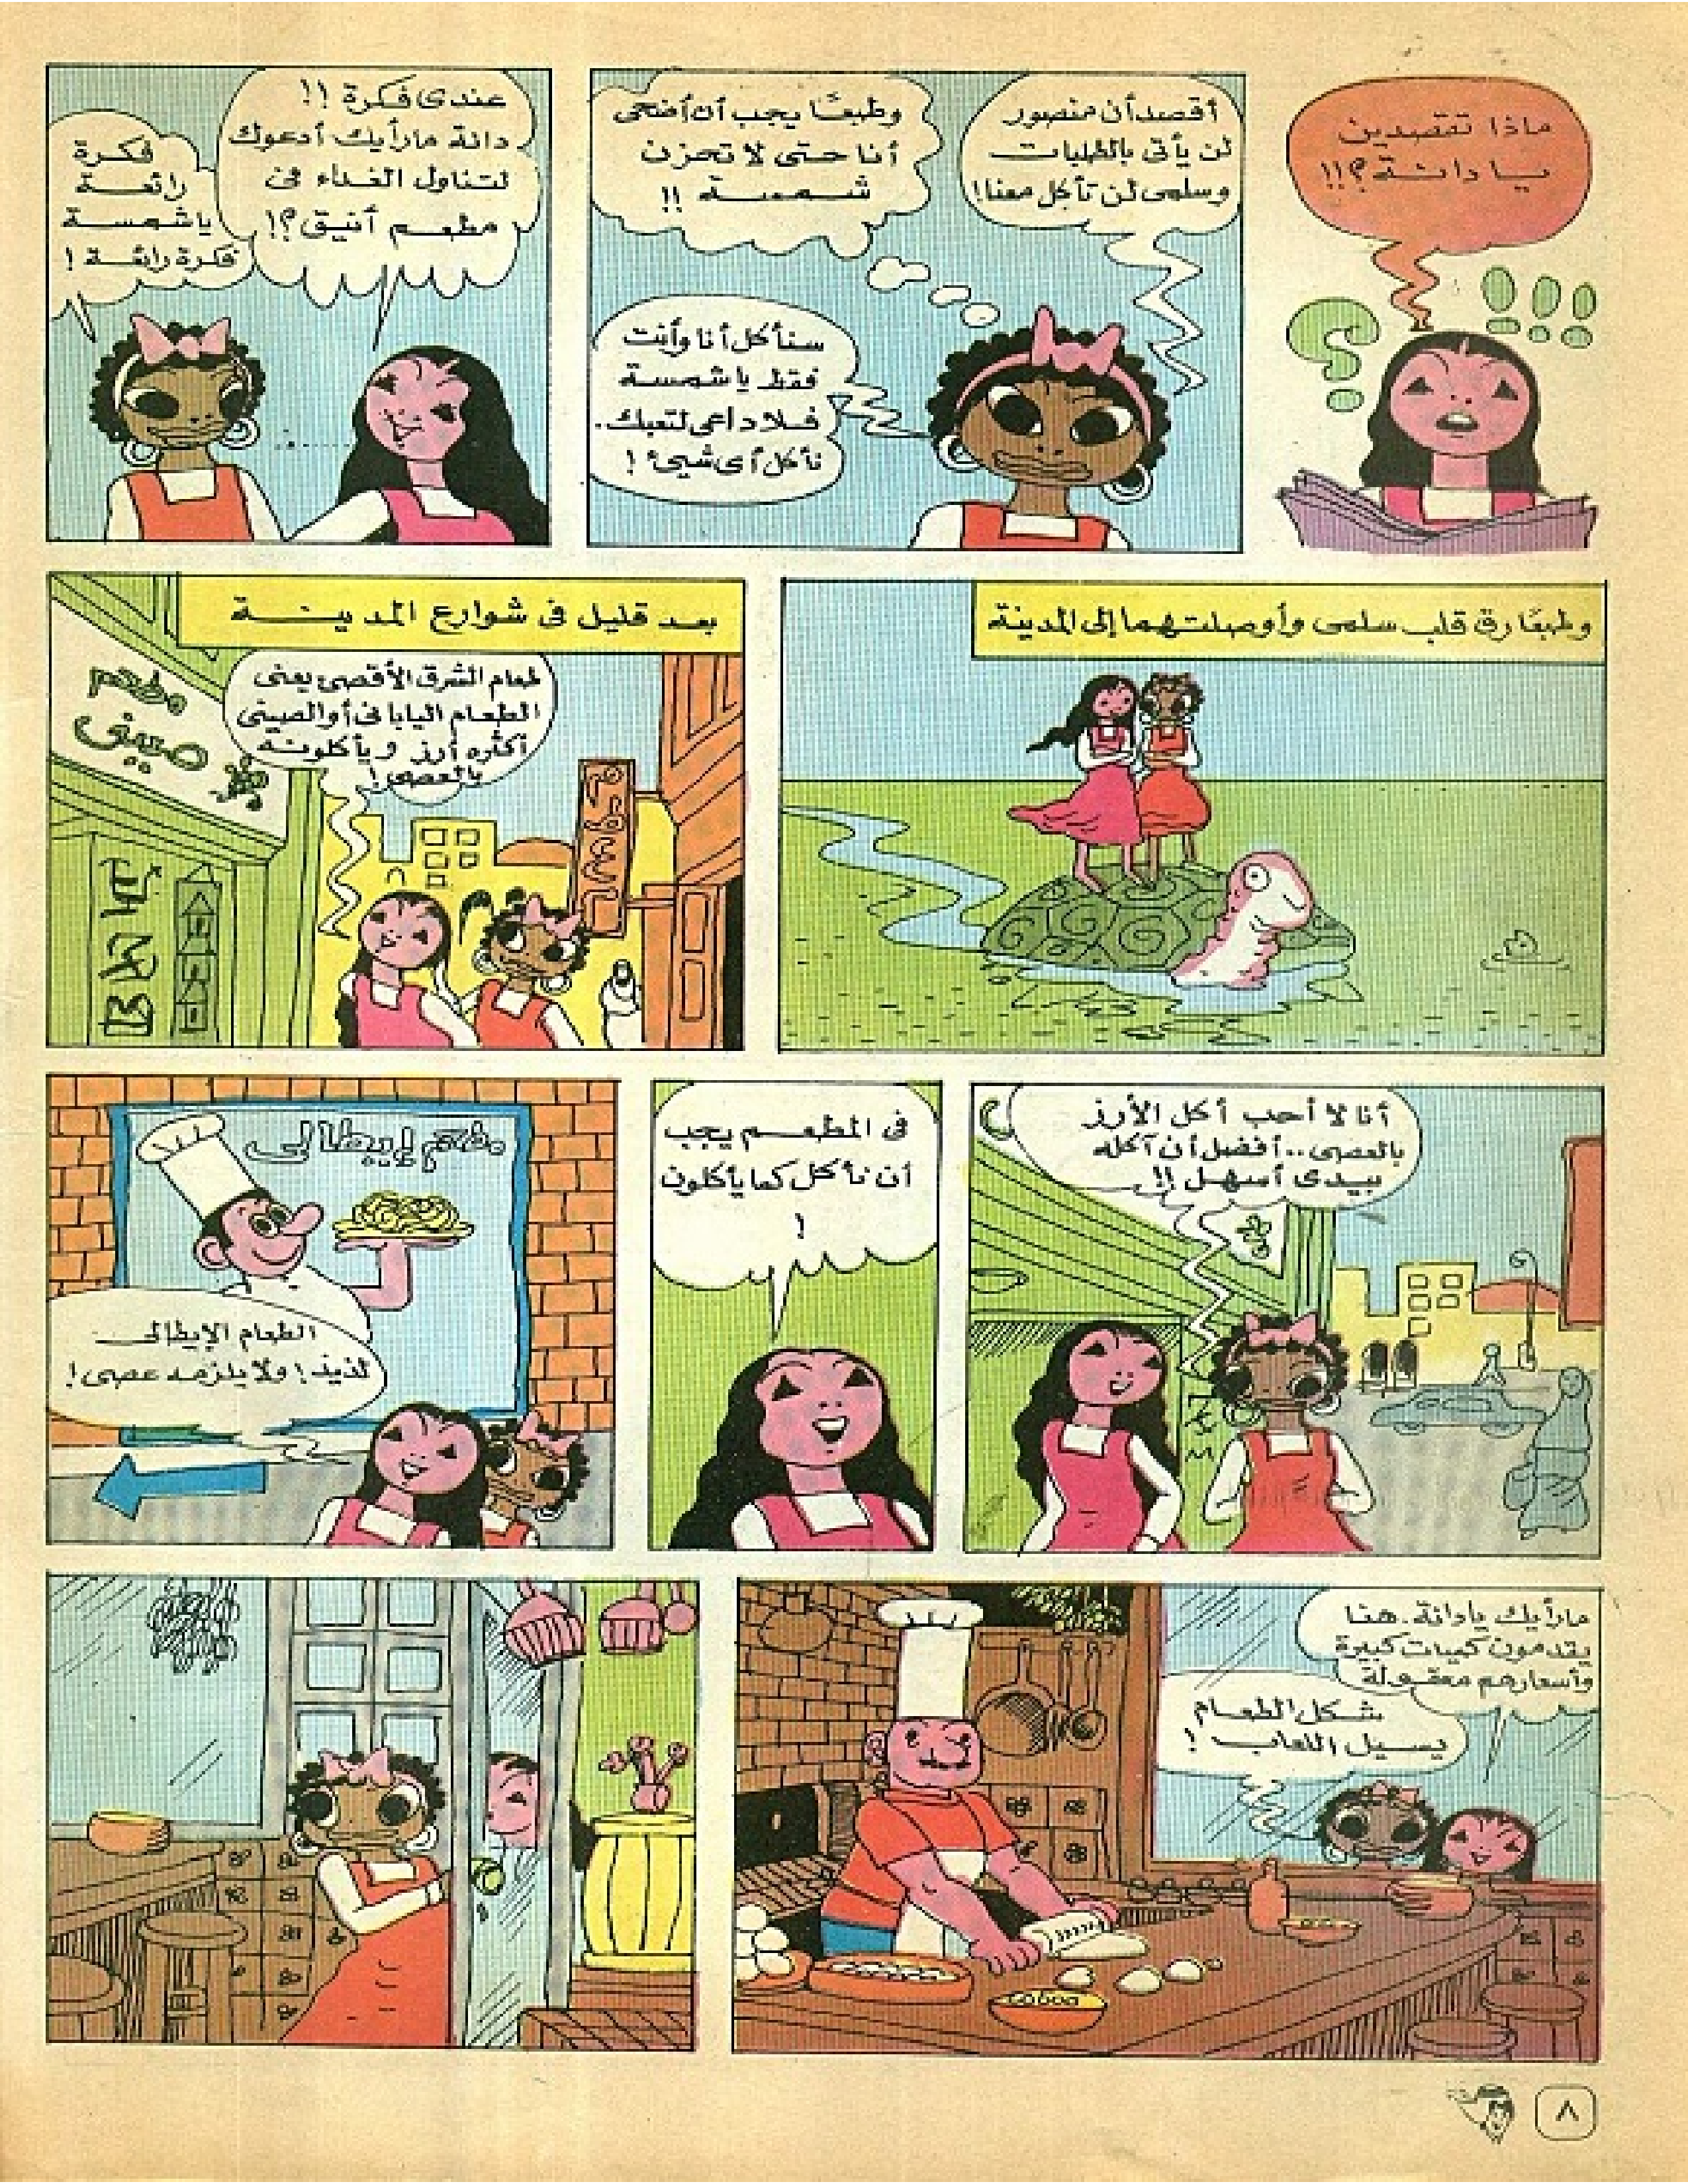 ماذا تقصدين
يا دانة؟!!
أقصد أن منصور
لن يأتى بالطلبات
وسلمى لن تأكل معنا!
وطبعًا يجب أن أضحى
أنا حتى لا تحزن
شمسة !!
سنأكل أنا وأنت
فقط يا شمسة
فلا داعى لتعبك.
نأكل أى شيئ !
عندى فكرة !!
دانة مارأيك أدعوك
لتناول الغداء فى
مطعم أنيق؟!
فكرة
رائعة
ياشمسة
فكرة رائعة !
وطبعًا رق قلب سلمى وأوصلتهما إلى المدينة
بعد قليل فى شوارع المدينة
طعام الشرق الأقصى يعنى
الطعام اليابانى أو الصينى
أكثره أرز ويأكلونه
بالعصى!
مطعم
صينى
أنا لا أحب أكل الأرز
بالعصى.. أفضل أن آكله
بيدى أسهل !!
فى المطعم يجب
أن نأكل كما يأكلون
!
مطعم إيطالى
الطعام الإيطالى
لذيذ! ولا يلزمه عصى!
مارأيك يادانة. هنا
يقدمون كميات كبيرة
وأسعارهم معقولة
شكل الطعام
يسيل اللعاب !
٨